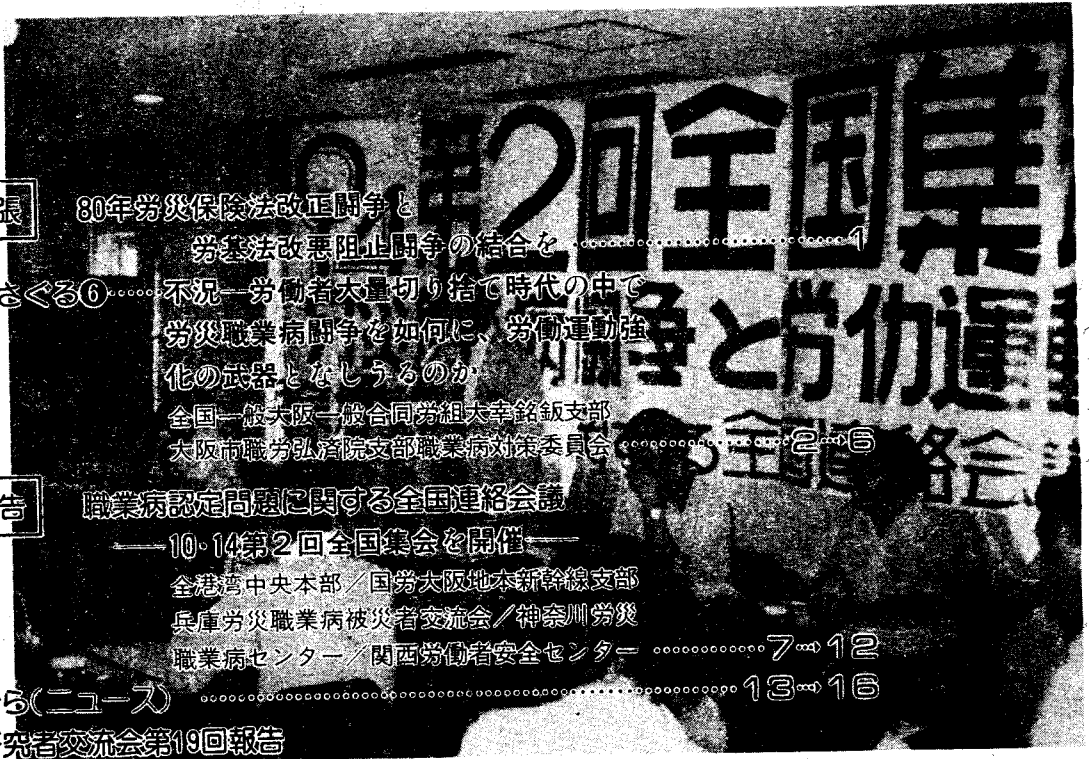 張 80年労災保険法改正闘争と
労基法改悪阻止闘争の結合を…………1
さぐる⑥……不況―労働者大量切り捨て時代の中で
労災職業病闘争を如何に、労働運動強
化の武器となしうるのか
全国一般大阪一般合同労組大幸銘鈑支部
大阪市職労弘済院支部職業病対策委員会…………2→6
告 職業病認定問題に関する全国連絡会議
――10・14第2回全国集会を開催――
全港湾中央本部/国労大阪地本新幹線支部
兵庫労災職業病被災者交流会/神奈川労災
職業病センター/関西労働者安全センター…………7→12
ら(ニュース)…………13→16
究者交流会第19回報告
第2回全国集
争と労仂運動
全国連絡会